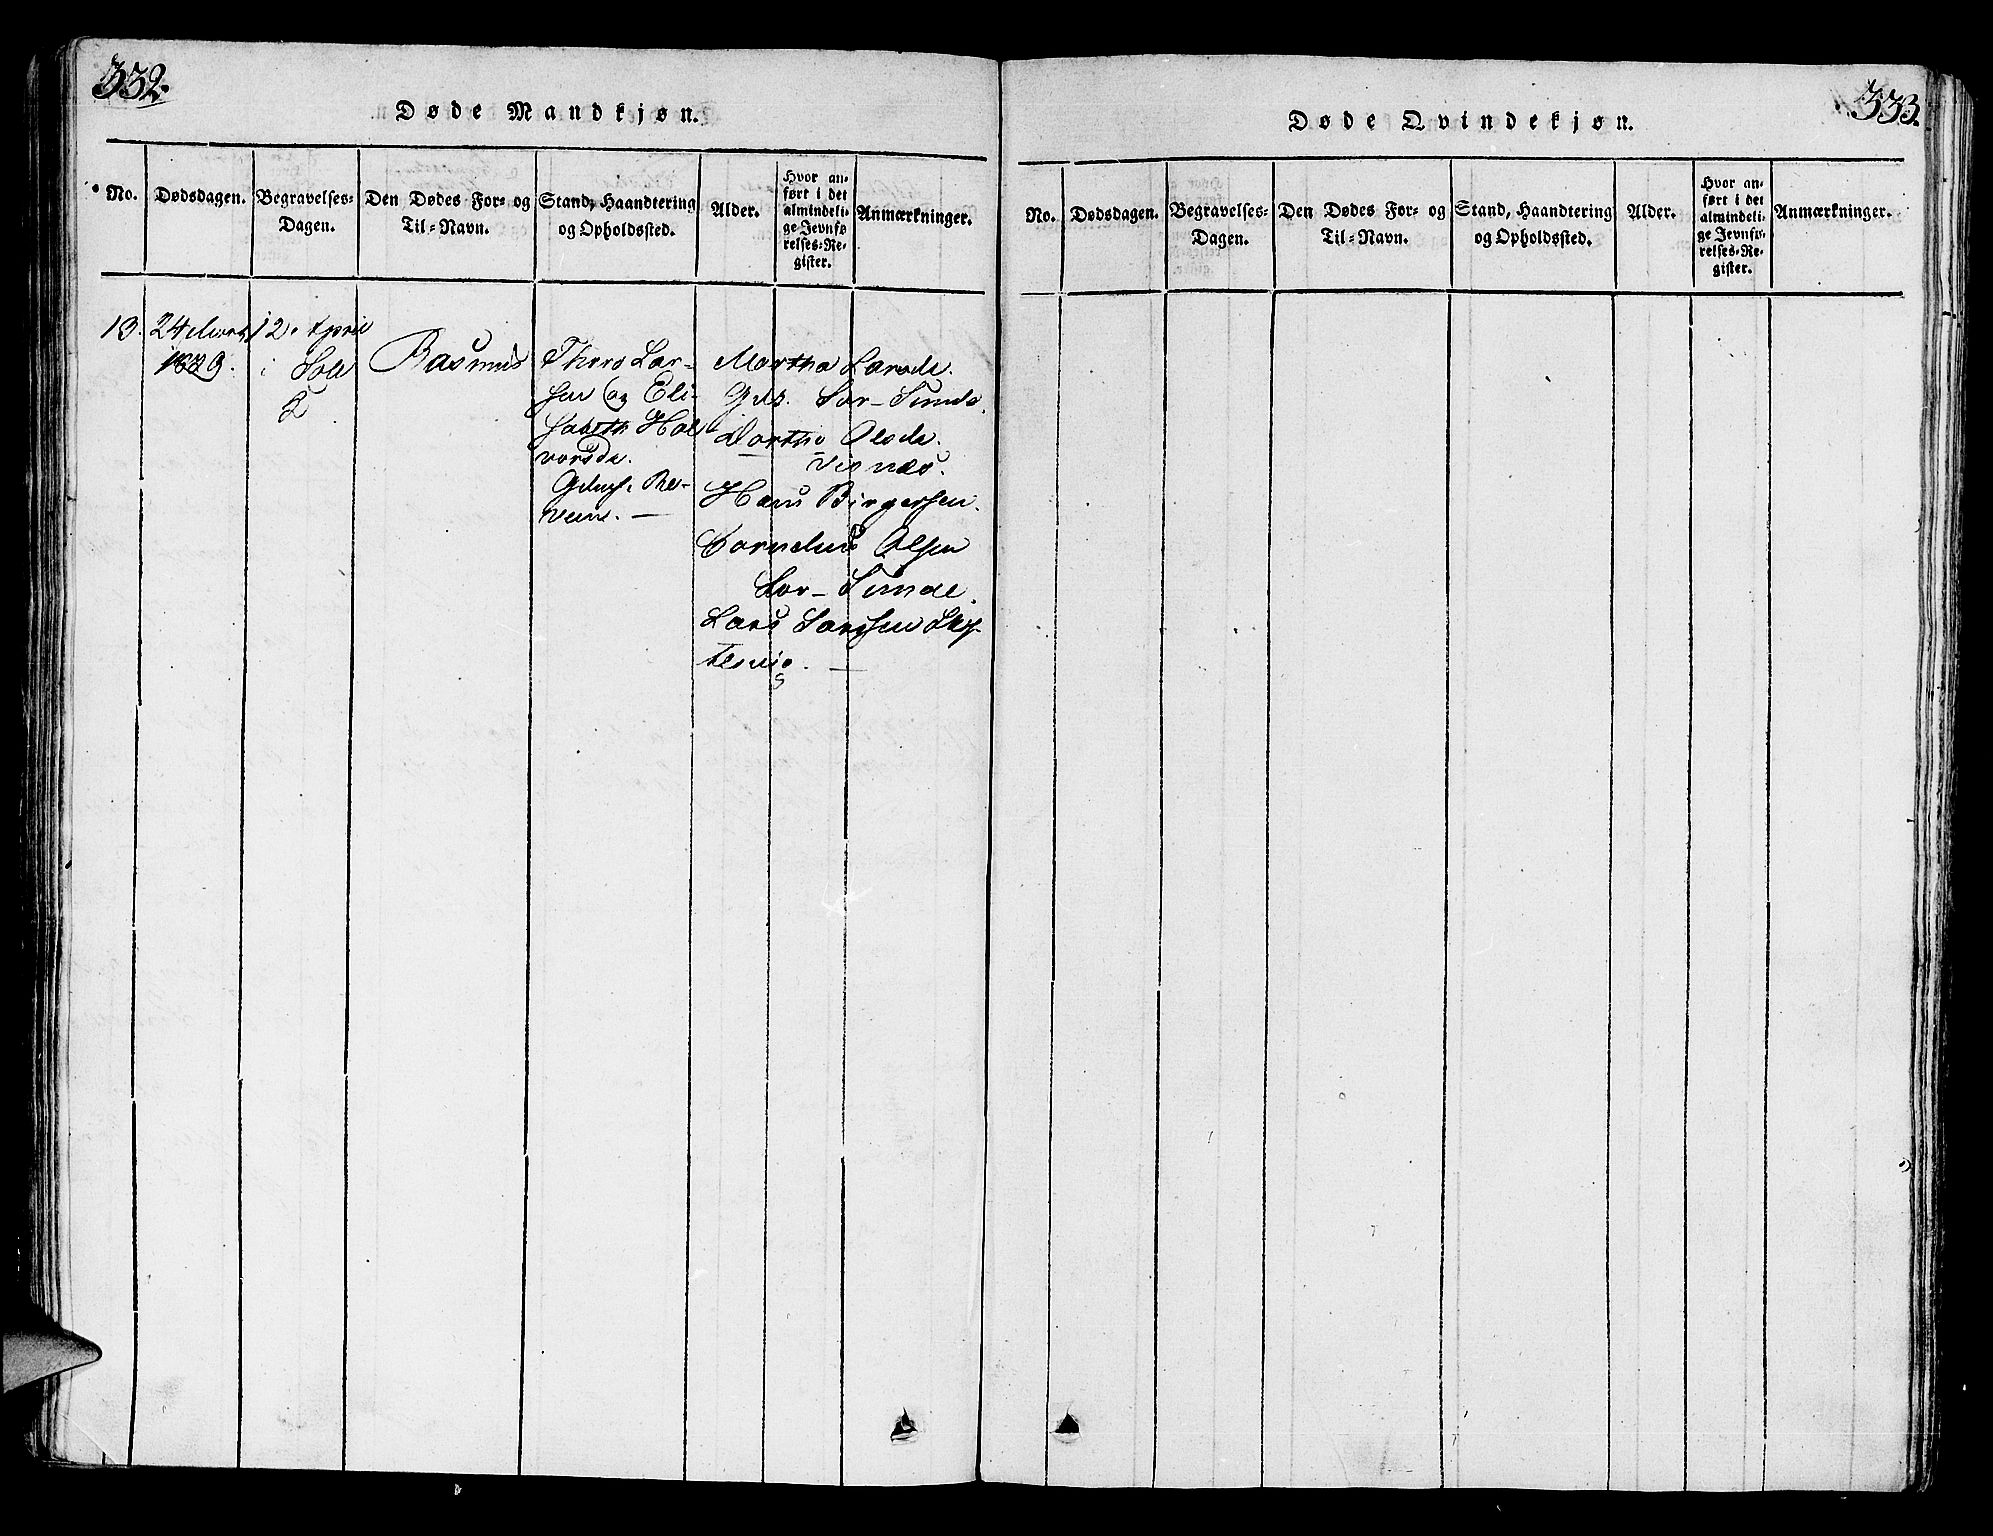 332.
Døde Mandkjøn.
No.
Dødsdagen.
Begravelses-
Dagen.
Den Dødes For- og
Til-Navn.
Stand, Haandtering
og Opholdssted.
Alder.
Hvor an-
ført i det
almindeli-
ge Jevnfø-
relses-Re-
gister.
Anmærkninger.
13.
24 Mart
1829.
12. April
i Sole
K
Rasmus
Thore Lar-
sen og Eli-
sabeth Hal
vorsda.
Gdmf. Re-
vem. —
Martha Larsda.
Gdk. Sør-Sunde.
Dorthe Olsda.
visnæs.
Hans Birgersen.
Cornelius Olsen
Sør-Sunde.
Lars Larssen Skif-
tesvig. —
333.
Døde Qvindekjøn.
No.
Dødsdagen.
Begravelses-
Dagen.
Den Dødes For- og
Til-Navn.
Stand, Haandtering
og Opholdssted.
Alder.
Hvor an-
ført i det
almindeli-
ge Jevnfø-
relses-Re-
gister.
Anmærkninger.